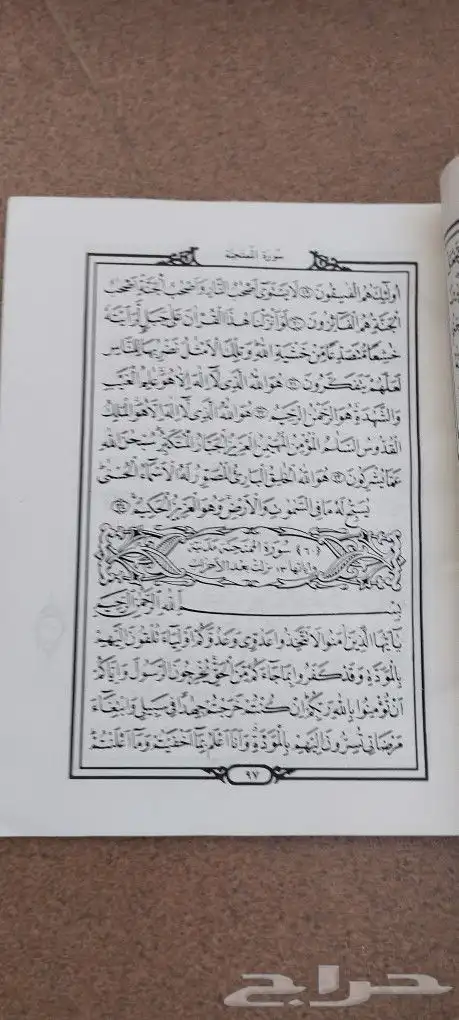 سورة الممتحنة
أولئك هم الفسقون ۝ لا يستوى أصحب النار وأصحب الجنة أصحب
الجنة هم الفائزون ۝ لو أنزلنا هذا القرءان على جبل لرأيته
خشعا متصدعا من خشية الله وتلك الأمثل نضربها للناس
لعلهم يتفكرون ۝ هو الله الذى لا إله إلا هو علم الغيب
والشهدة هو الرحمن الرحيم ۝ هو الله الذى لا إله إلا هو الملك
القدوس السلم المؤمن المهيمن العزيز الجبار المتكبر سبحن الله
عما يشركون ۝ هو الله الخلق البارئ المصور له الأسماء الحسنى
يسبح له ما فى السموت والأرض وهو العزيز الحكيم ۝
(٦٠) سورة الممتحنة مدنية
وآياتها ١٣ نزلت بعد الأحزاب
بسم الله الرحمن الرحيم
يأيها الذين ءامنوا لا تتخذوا عدوى وعدوكم أولياء تلقون إليهم
بالمودة وقد كفروا بما جاءكم من الحق يخرجون الرسول وإياكم
أن تؤمنوا بالله ربكم إن كنتم خرجتم جهدا فى سبيلى وابتغاء
مرضاتى تسرون إليهم بالمودة وأنا أعلم بما أخفيتم وما أعلنتم
٩٧
حراج